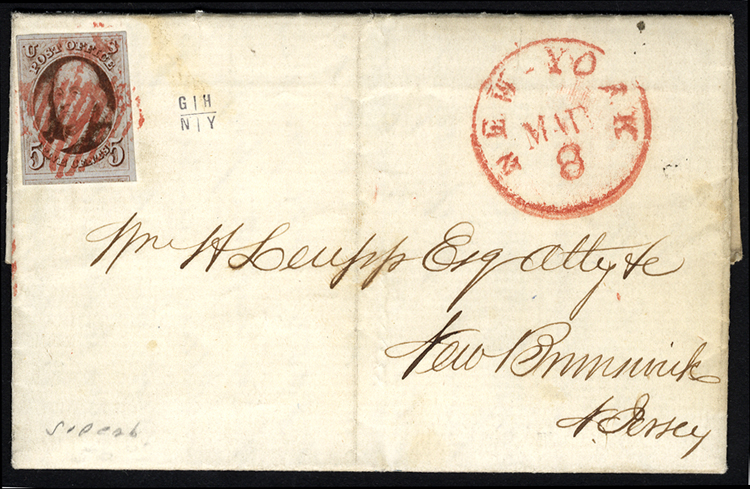 U S
POST OFFICE
5 FIVE CENTS. 5
G|H
N|Y
NEW-YORK
MAR
8
Wm H Leupp Esq Atty &c
New Brunswick
N. Jersey